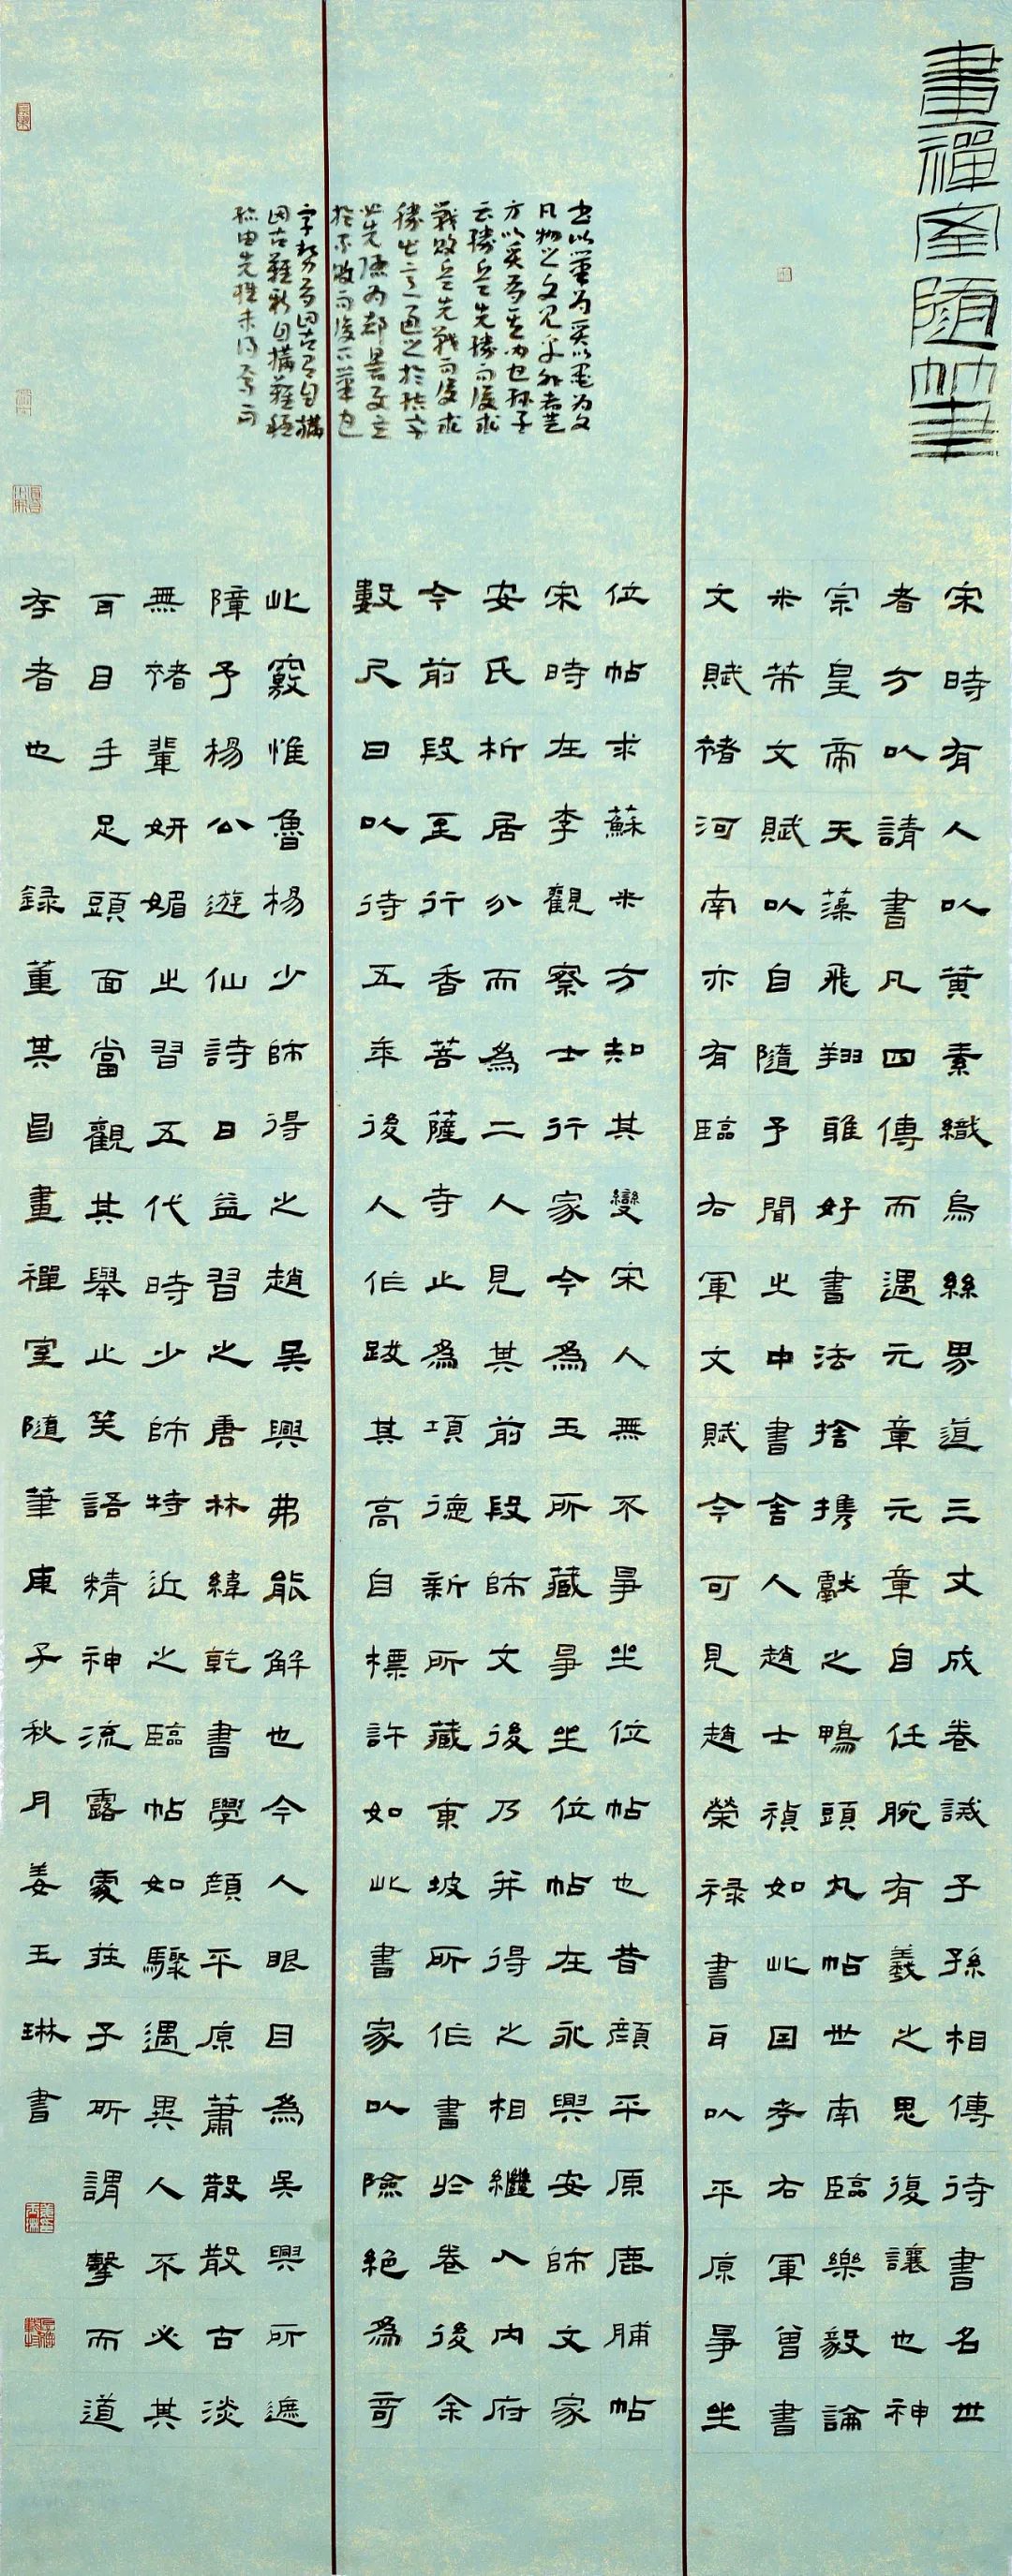 畫禪室隨筆
宋時有人以黃素織烏絲界道三丈成卷誡子孫相傳待書名世
者方以請書凡四傳而遇元章元章自任腕有羲之思復讓也神
宗皇帝天藻飛翔雅好書法捨携獻之鴨頭丸帖世南臨樂毅論
米芾文賦以自隨予聞之中書舍人趙士禎如此因考右軍曾書
文賦褚河南亦有臨右軍文賦今可見趙榮祿書耳以平原爭坐
位帖求蘇米方知其變宋人無不爭坐位帖也昔顏平原鹿脯帖
宋時在李觀察士行家今為玉所藏爭坐位帖在永興安師文家
安氏析居分而為二人見其前段師文後乃并得之相繼入內府
今前段至行香菩薩寺止為項德新所藏東坡所作書於卷後余
數尺日以待五年後人作跋其高自標許如此書家以險絕為奇
此竅惟魯楊少師得之趙吳興弗能解也今人眼目為吳興所遮
障予楊公遊仙詩日益習之唐林緯乾書學顏平原蕭散散古淡
無褚輩妍媚之習五代時少師特近之臨帖如驟遇異人不必其
耳目手足頭面當觀其舉止笑語精神流露處莊子所謂擊而道
存者也　錄董其昌畫禪室隨筆庚子秋月姜玉琳書
書以筆為質以墨為文
凡物之文見乎外者豈
方以質為其內也孫子
云勝兵先勝而後求
戰敗兵先戰而後求
勝此言通之於結字
必先隱為部署及立
於不敗而後下筆也
字勢有因古有自構
因古難新自構難穩